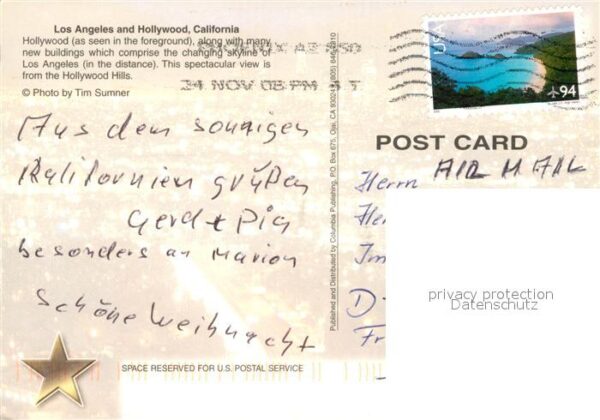 Los Angeles and Hollywood, California
Hollywood (as seen in the foreground), along with many
new buildings which comprise the changing skyline of
Los Angeles (in the distance). This spectacular view is
from the Hollywood Hills.
© Photo by Tim Sumner
24 NOV 08 PM
Aus dem sonnigen
Kalifornien grüßen
Gerd + Pia
besonders an Marion
Schöne Weihnacht
SPACE RESERVED FOR U.S. POSTAL SERVICE
Published and Distributed by Columbia Publishing, P.O. Box 675, Ojai, CA
USA
94
POST CARD
AIR MAIL
Herrn
D-
Fr
privacy protection
Datenschutz